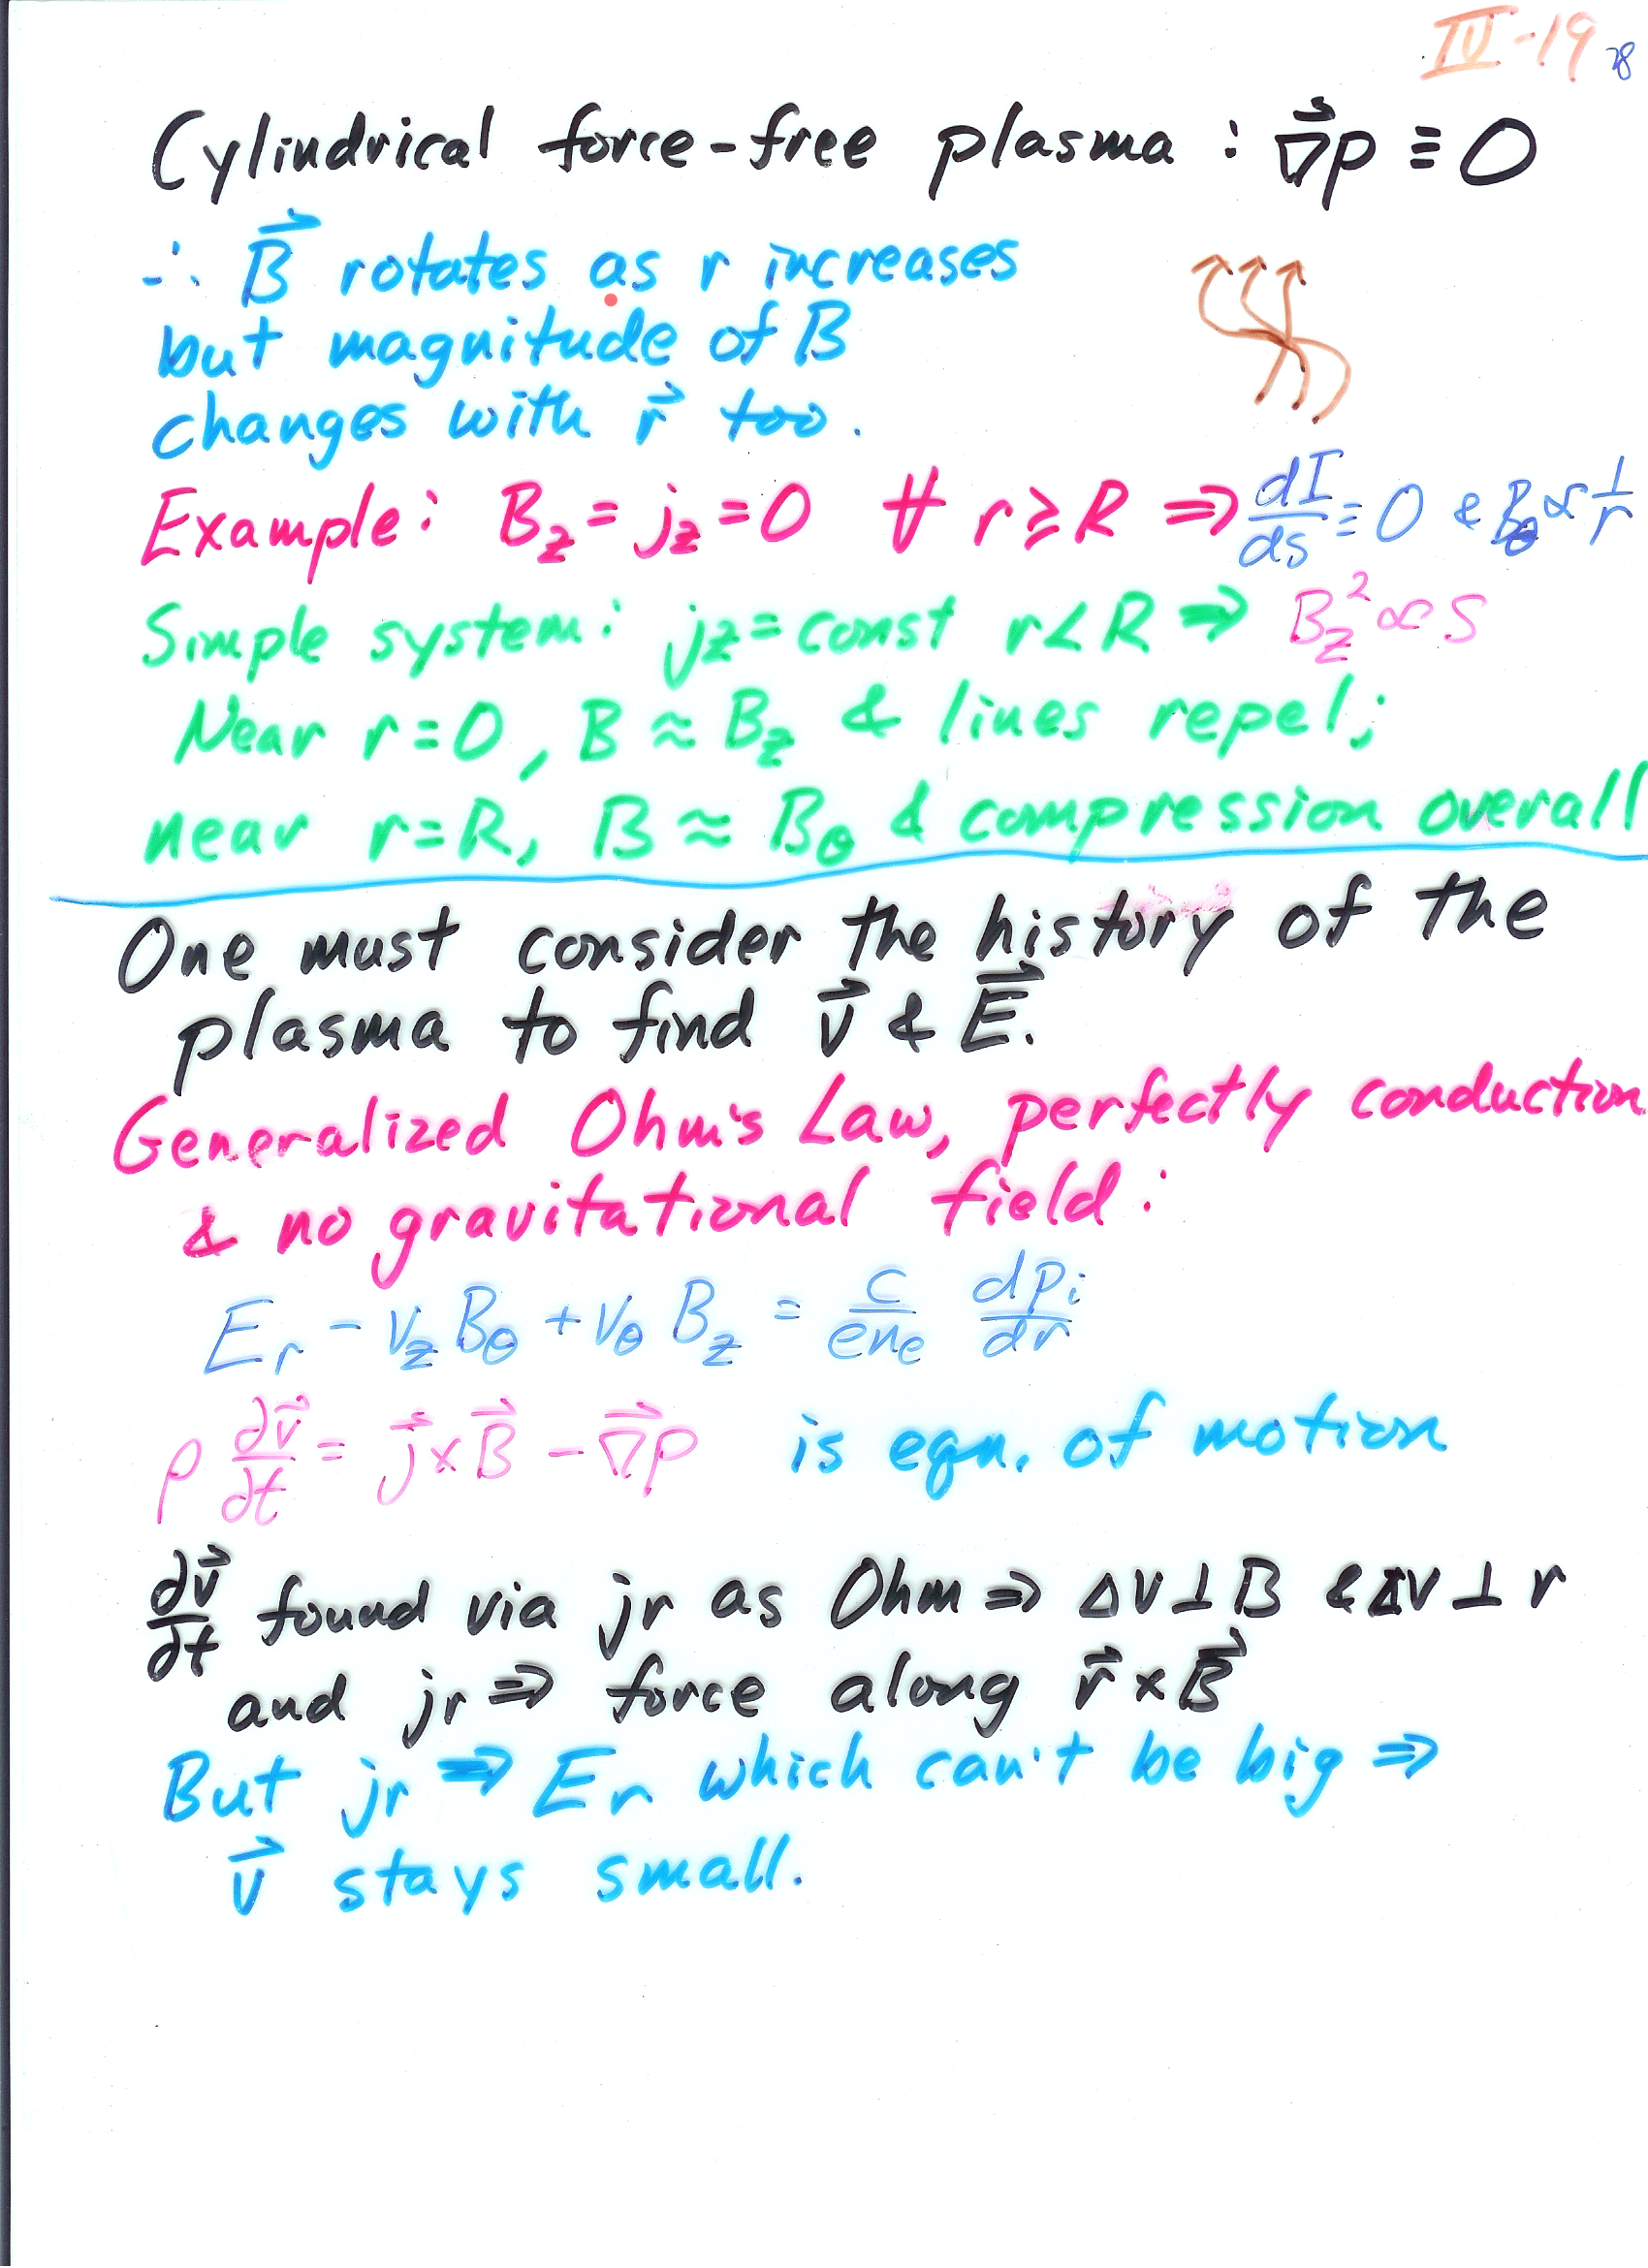 IV-19 28
Cylindrical force-free plasma : ∇⃗p ≡ 0
∴ B⃗ rotates as r increases
but magnitude of B
changes with r⃗ too.
Example: B_z = j_z = 0 ∀ r ≥ R ⇒ dI/ds ≡ 0 & B_θ ∝ 1/r
Simple system: j_z = const r < R ⇒ B_z² ∝ S
Near r = 0, B ≈ B_z & lines repel;
near r = R, B ≈ B_θ & compression overall
One must consider the history of the
plasma to find v⃗ & E⃗.
Generalized Ohm's Law, perfectly conduction
& no gravitational field:
E_r - v_z B_θ + v_θ B_z = c/(en_e) dp_i/dr
ρ ∂v⃗/∂t = j⃗ × B⃗ - ∇⃗p is eqn. of motion
∂v⃗/∂t found via jr as Ohm ⇒ Δv ⊥ B & Δv ⊥ r
and jr ⇒ force along r⃗ × B⃗
But jr ⇒ Er which can't be big ⇒
v⃗ stays small.